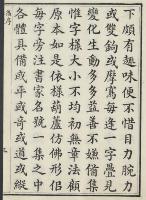 下頗有趣味便不惜目力腕力
或雙鉤或摩寫每逢一字疊見
變化生動多多益善不嫌備集
惟字樣大小不均漫無章法顧
原本如是依樣葫蘆仿佛形侣
每字旁注書家名號一集之中
各體具備或平或奇或通或縱